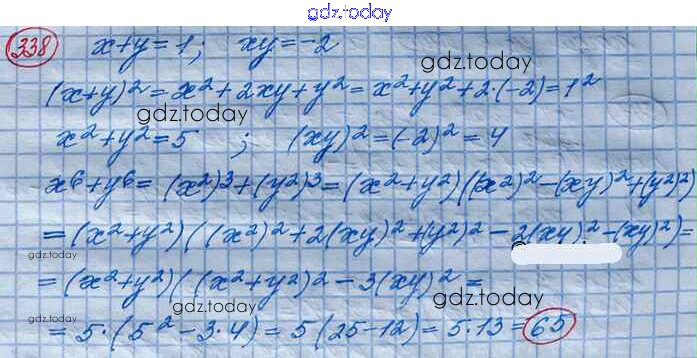 gdz.today
338 x+y=1; xy=-2
gdz.today
(x+y)²=x²+2xy+y²=x²+y²+2·(-2)=1²
gdz.today
x²+y²=5 ; (xy)²=(-2)²=4
x⁶+y⁶= (x²)³+(y²)³=(x²+y²)((x²)²-(xy)²+(y²)²)
gdz.today
=(x²+y²)((x²)²+2(xy)²+(y²)²-2(xy)²-(xy)²)=
gdz.today
=(x²+y²)((x²+y²)²-3(xy)²=
gdz.today
gdz.today
=5·(5²-3·4)=5(25-12)=5·13=65
gdz.today